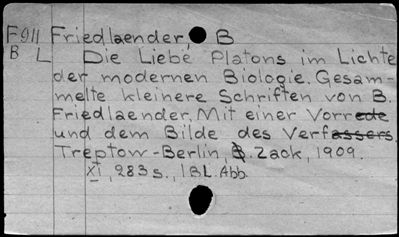 F911 Friedlaender, B
B L Die Liebe Platons im Lichte
der modernen Biologie. Gesam-
melte kleinere Schriften von B.
Friedlaender. Mit einer Vorrede
und dem Bilde des Verfassers.
Treptow-Berlin, B. Zack, 1909.
XI, 283 s., 1 BL. Abb.